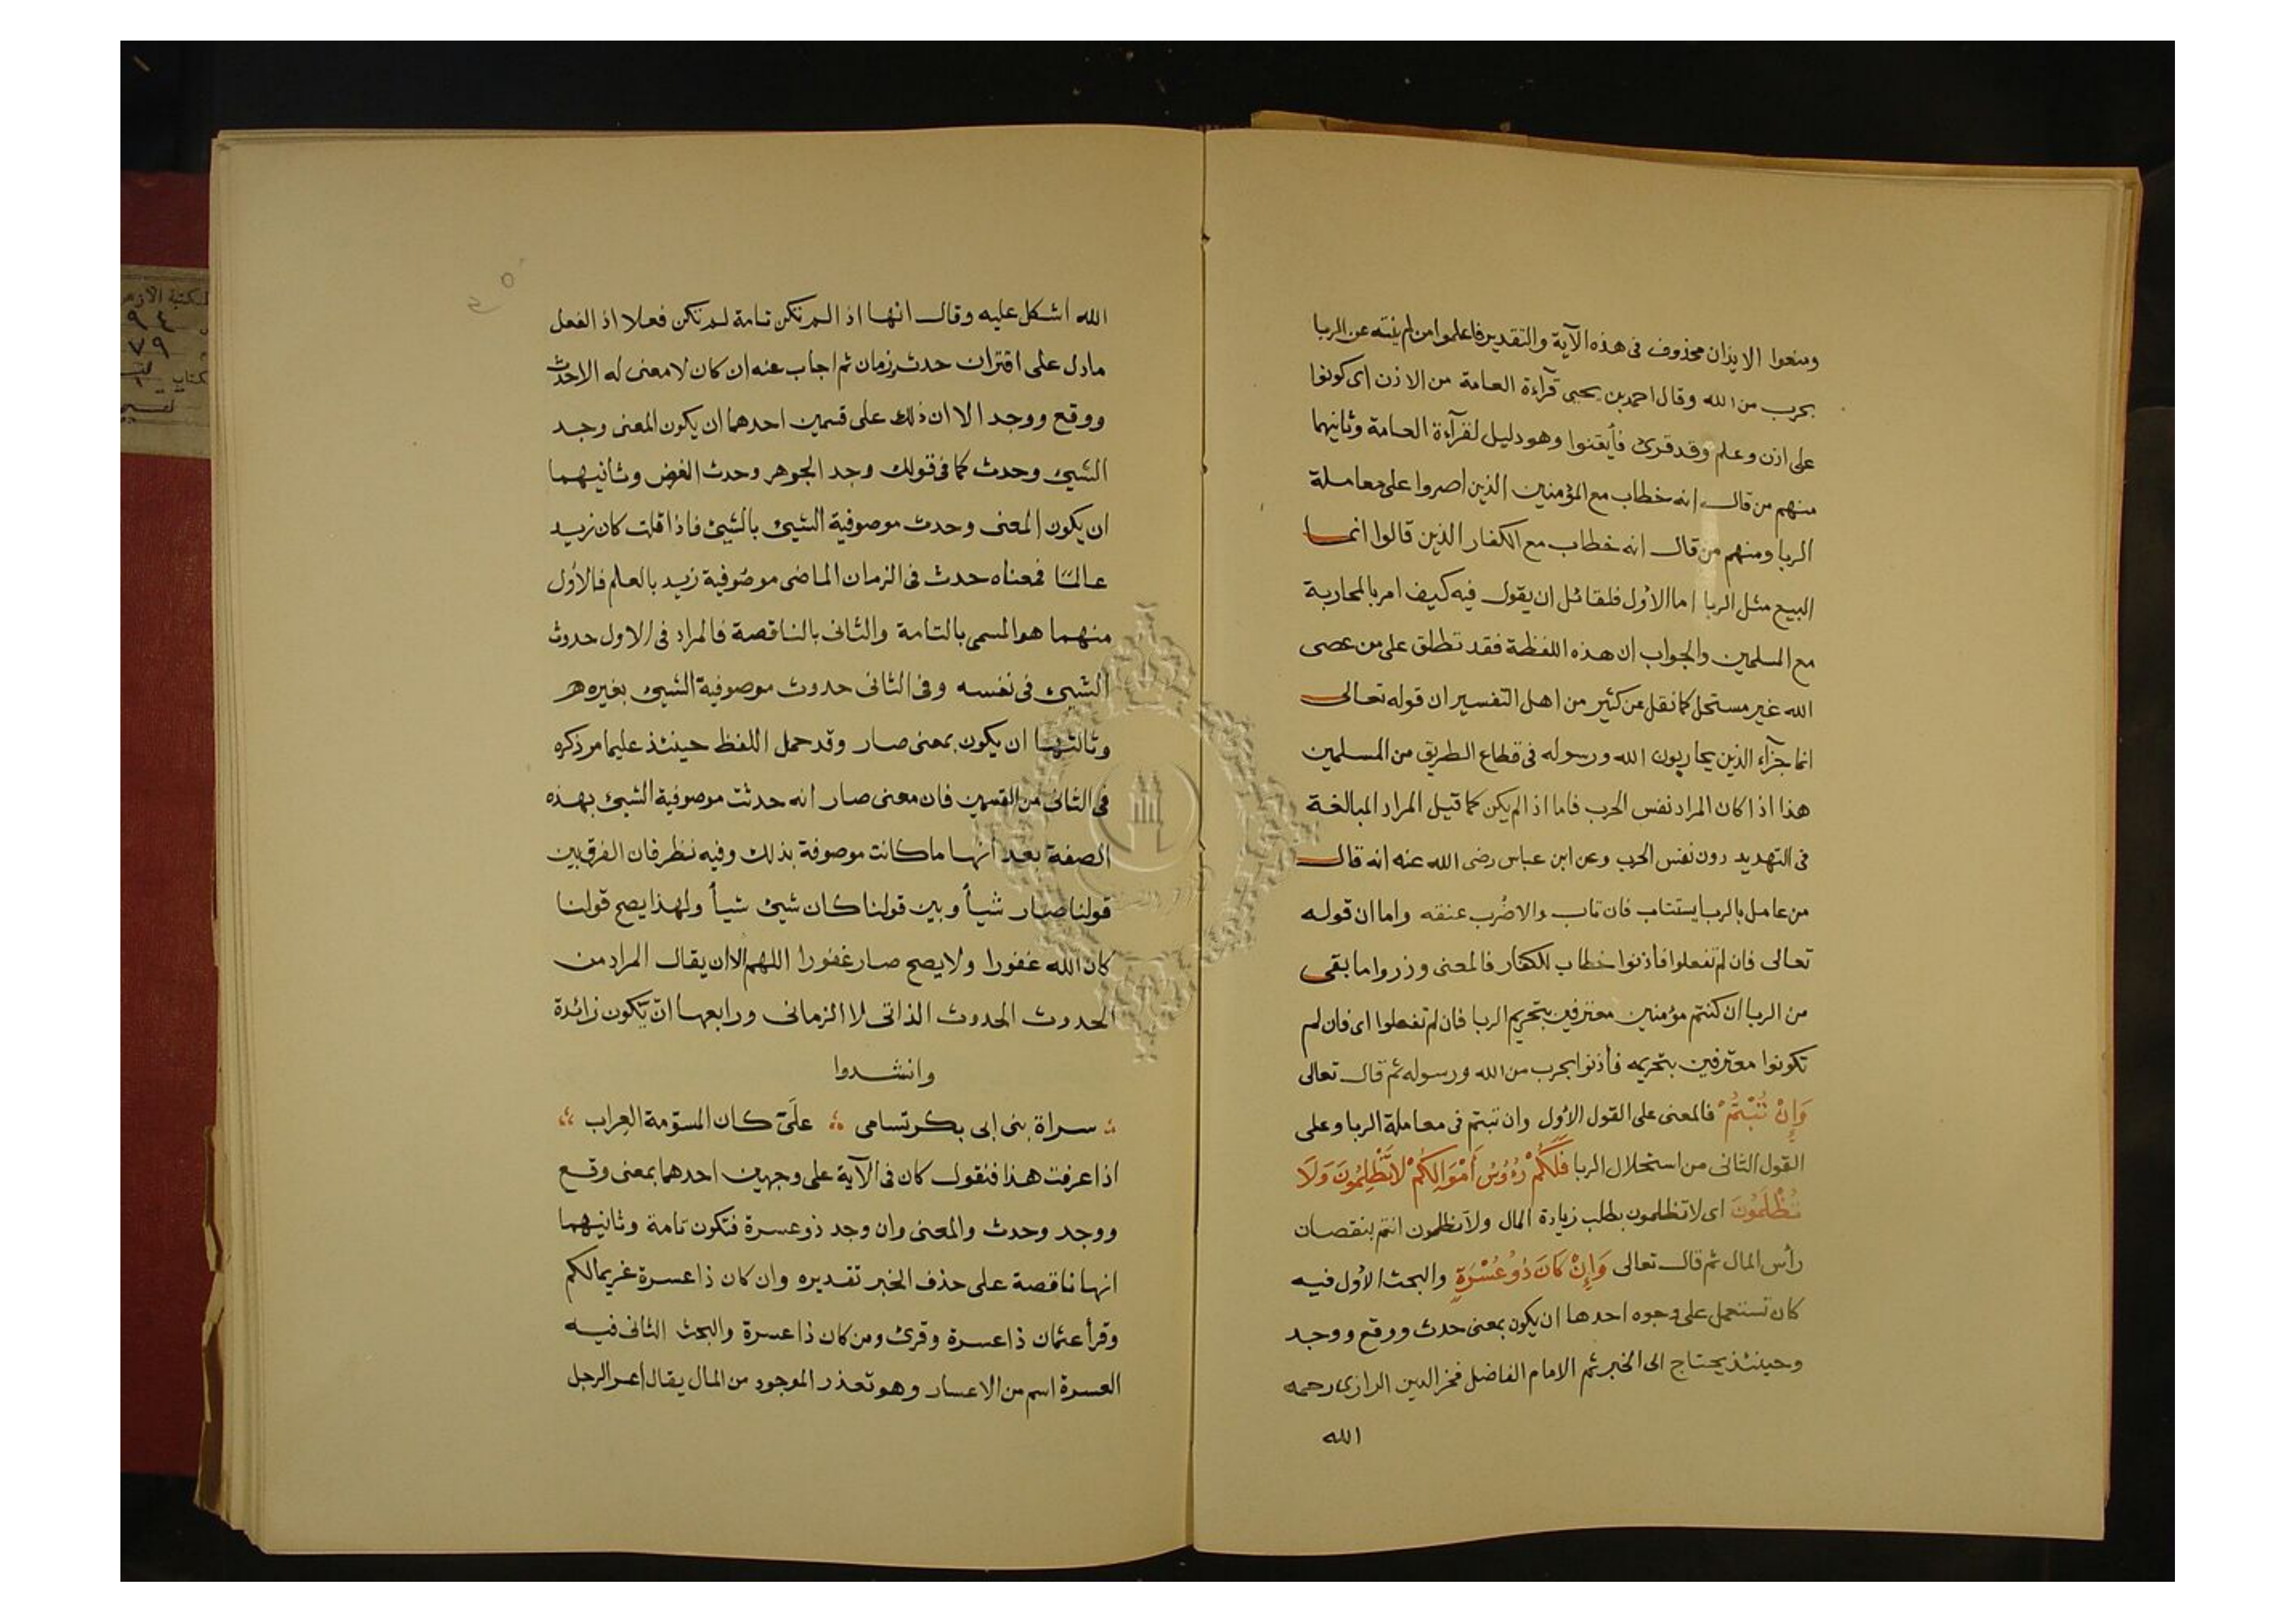 ومنعوا الايذان محذوف فى هذه الآية والتقدير فاعلموا من لم ينته عن الربا
بحرب من الله وقال احمد بن يحيى قرآءة العامة من الاذن اى كونوا
على اذن وعلم وقد قرئ فأيقنوا وهو دليل لقرآءة العامة وثانيهما
منهم من قال انه خطاب مع المؤمنين الذين اصروا على معاملة
الربا ومنهم من قال انه خطاب مع الكفار الذين قالوا انما
البيع مثل الربا اما الأول فلقائل ان يقول فيه كيف امر بالمحاربة
مع المسلمين والجواب ان هذه اللفظة فقد تطلق على من عصى
الله غير مستحل كما نقل عن كثير من اهل التفسير ان قوله تعالى
انما جزآء الذين يحاربون الله ورسوله فى قطاع الطريق من المسلمين
هذا اذا كان المراد نفس الحرب فاما اذ الم يكن كما قيل المراد المبالغة
فى التهديد دون نفس الحرب وعن ابن عباس رضى الله عنه انه قال
من عامل بالربا يستتاب فان تاب والا ضُرب عنقه واما ان قوله
تعالى فان لم تفعلوا فاذنوا خطاب للكفار فالمعنى وذروا ما بقى
من الربا ان كنتم مؤمنين معترفين بتحريم الربا فان لم تفعلوا اى فان لم
تكونوا معترفين بتحريمه فأذنوا بحرب من الله ورسوله ثم قال تعالى
وَإِنْ تُبْتُمْ فالمعنى على القول الأول وان تبتم فى معاملة الربا وعلى
القول الثانى من استحلال الربا فَلَكُمْ رُءُوسُ أَمْوَالِكُمْ لَا تَظْلِمُونَ وَلَا
تُظْلَمُونَ اى لا تظلمون بطلب زيادة المال ولا تظلمون انتم بنقصان
رأس المال ثم قال تعالى وَإِنْ كَانَ ذُو عُسْرَةٍ والبحث الأول فيه
كان تستعمل على وجوه احدها ان يكون بمعنى حدث ووقع ووجد
وحينئذ يحتاج الى الخبر ثم الامام الفاضل فخر الدين الرازى رحمه
الله
الله اشكل عليه وقال انها اذ الم تكن تامة لم تكن فعلا اذ الفعل
مادل على اقتران حدث بزمان ثم اجاب عنه ان كان لا معنى له الا حدث
ووقع ووجد الا ان ذلك على قسمين احدهما ان يكون المعنى وجد
الشيئ وحدث كما فى قولك وجد الجوهر وحدث العرض وثانيهما
ان يكون المعنى وحدث موصوفية الشيئ بالشيئ فاذا قلت كان زيد
عالما فمعناه حدث فى الزمان الماضى موصوفية زيد بالعلم فالأول
منهما هو المسمى بالتامة والثانى بالناقصة فالمراد فى الاول حدوث
الشيئ فى نفسه وفى الثانى حدوث موصوفية الشيئ بغيره
وثالثها ان يكون بمعنى صار وقد حمل اللفظ حينئذ عليما مر ذكره
فى الثانى من القسمين فان معنى صار انه حدثت موصوفية الشيئ بهذه
الصفة بعد انها ما كانت موصوفة بذلك وفيه نظر فان الفرق بين
قولنا صار شيأ وبين قولنا كان شيئ شيأ ولهذا يصح قولنا
كان الله غفورا ولا يصح صار غفورا اللهم الا ان يقال المراد من
الحدوث الحدوث الذاتى لا الزمانى ورابعها ان تكون زائدة
وانشدوا
سراة بنى ابى بكر تسامى علَى كان المسوّمة العِراب
اذا عرفت هذا فنقول كان فى الآية على وجهين احدهما بمعنى وقع
ووجد وحدث والمعنى وان وجد ذو عسرة فتكون تامة وثانيهما
انها ناقصة على حذف الخبر تقديره وان كان ذا عسرة غريما لكم
وقرأ عثمان ذا عسرة وقرئ ومن كان ذا عسرة والبحث الثانى فيه
العسرة اسم من الاعسار وهو تعذر الموجود من المال يقال اعسر الرجل